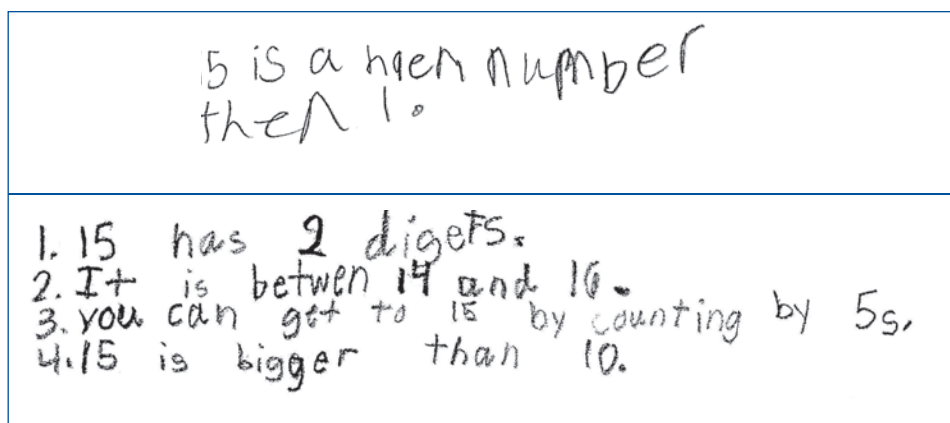 5 is a hien number
then 1.
1. 15 has 2 digets.
2. It is betwen 14 and 16.
3. you can get to 15 by counting by 5s.
4. 15 is bigger than 10.